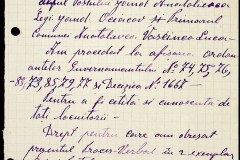 șeful Postului Jand. Anatolievca
Legi. Jand. Oceacov și Primarul
Comunei Anatolievca Vasileica Luca
Am procedat la afișarea ordon-
anțelor Guvernamentului Nº 74, 75, 76,
-83, 73, 85, 79, 77 și Decizia Nº 1667-
Pentru a fi citită și cunoscută de
toți locuitorii-
Drept pentru care am dresat
prezentul Proces-Verbal în 2 exemplare